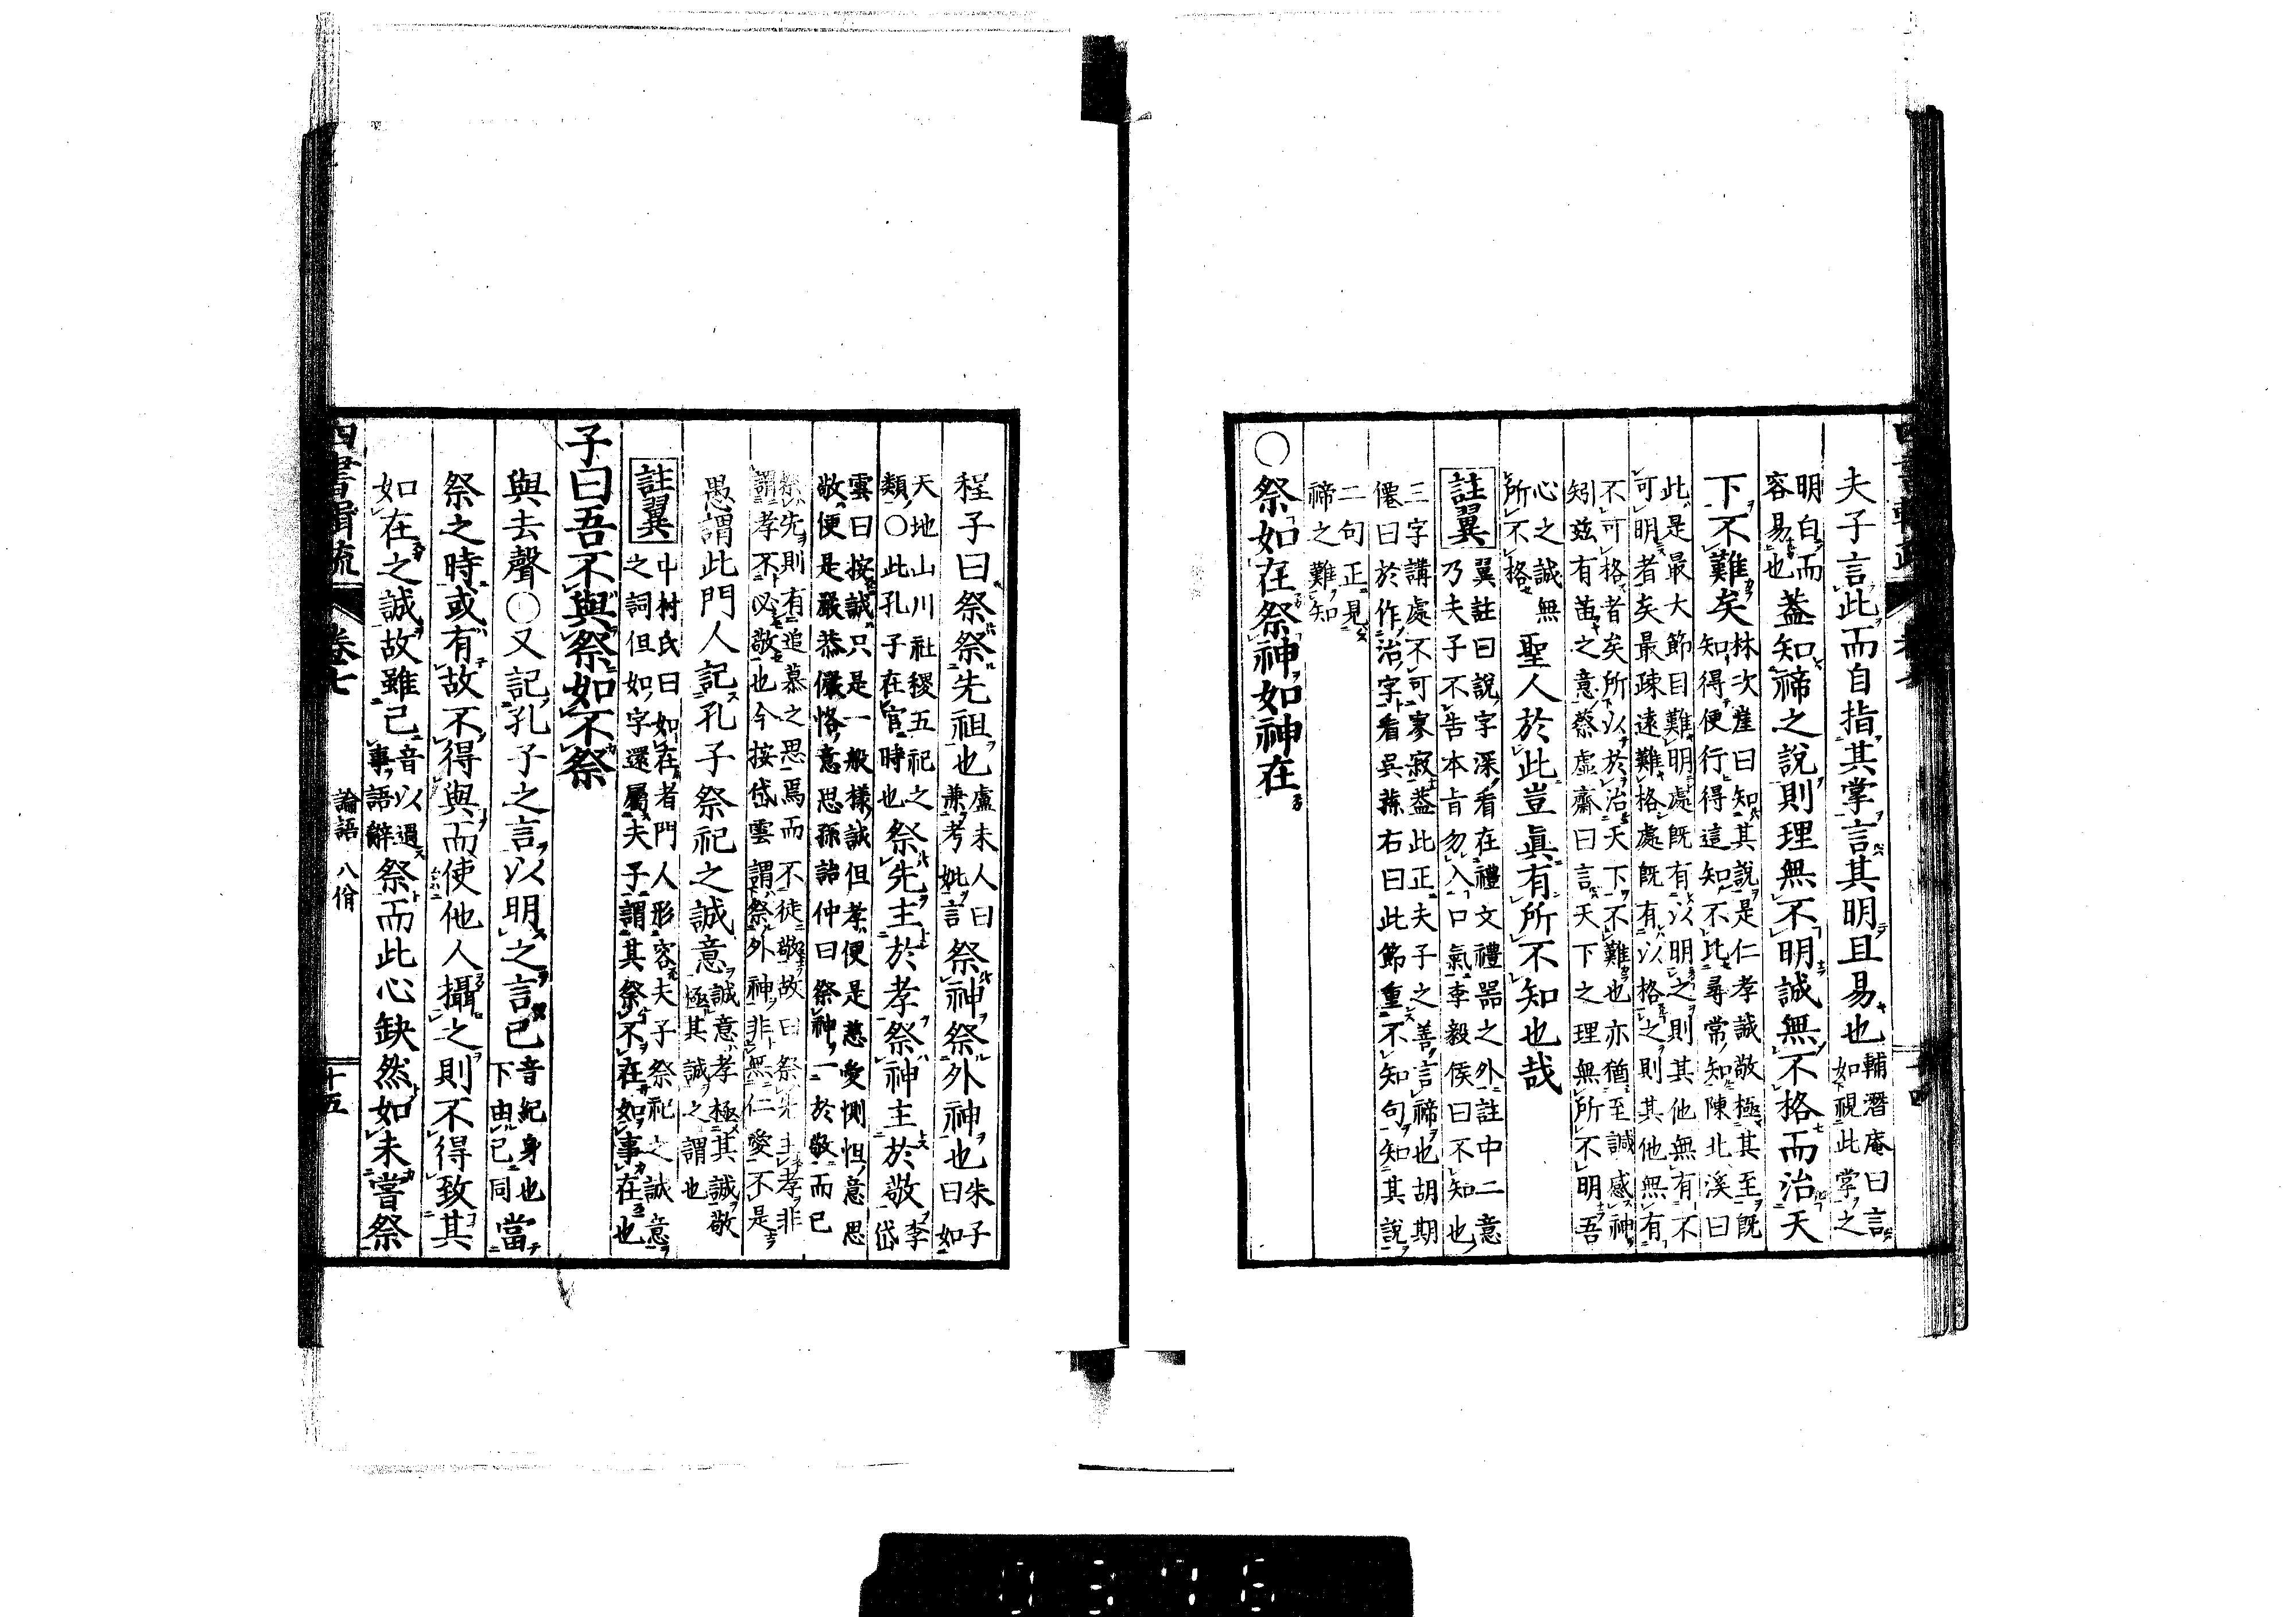 夫子言此而自指其掌言其明且易也輔潛庵曰言
如視此掌之
明白而
容易也蓋知禘之說則理無不明誠無不格而治天
下不難矣林次崖曰知其說是仁孝誠敬極其至既
知得便行得這知不比尋常知陳北溪曰
此是最大節目難明處既有以明之則其他無有不
可明者矣最疎遠難格處既有以格之則其他無有
不可格者矣所以於治天下不難也亦猶至誠感神
矧茲有苗之意蔡虛齋曰言天下之理無所不明吾
心之誠無
所不格聖人於此豈眞有所不知也哉
註翼
翼註曰說字深看在禮文禮器之外註中二意
乃夫子不告本旨勿入口氣李毅侯曰不知也
三字講處不可寥寂蓋此正夫子之善言禘也胡期
僊曰於作治字看吳蓀右曰此節重不知句知其說
二句正見
禘之難知
○祭如在祭神如神在
程子曰祭祭先祖也盧未人曰
兼考妣言祭神祭外神也朱子
曰如
天地山川社稷五祀之
類○此孔子在官時也祭先主於孝祭神主於敬李
岱
雲曰按誠只是一般樣誠但孝便是慈愛惻怛意思
敬便是嚴恭儼恪意思孫詒仲曰祭神一於敬而已
祭先則有追慕之思焉而不徒敬故曰祭先主孝非
謂孝不必敬也今按岱雲謂祭外神非無仁愛不是
愚謂此門人記孔子祭祀之誠意誠意孝極其誠敬
極其誠之謂也
註翼
中村氏曰如在者門人形容夫子祭祀之誠意
之詞但如字還屬夫子謂其祭不在如事在也
子曰吾不與祭如不祭
與去聲○又記孔子之言以明之言己音紀身也
下由己同當
祭之時或有故不得與而使他人攝之則不得致其
如在之誠故雖已音以過
事語辭祭而此心缺然如未嘗祭
四書輯疏
卷七
論語 八佾
十五